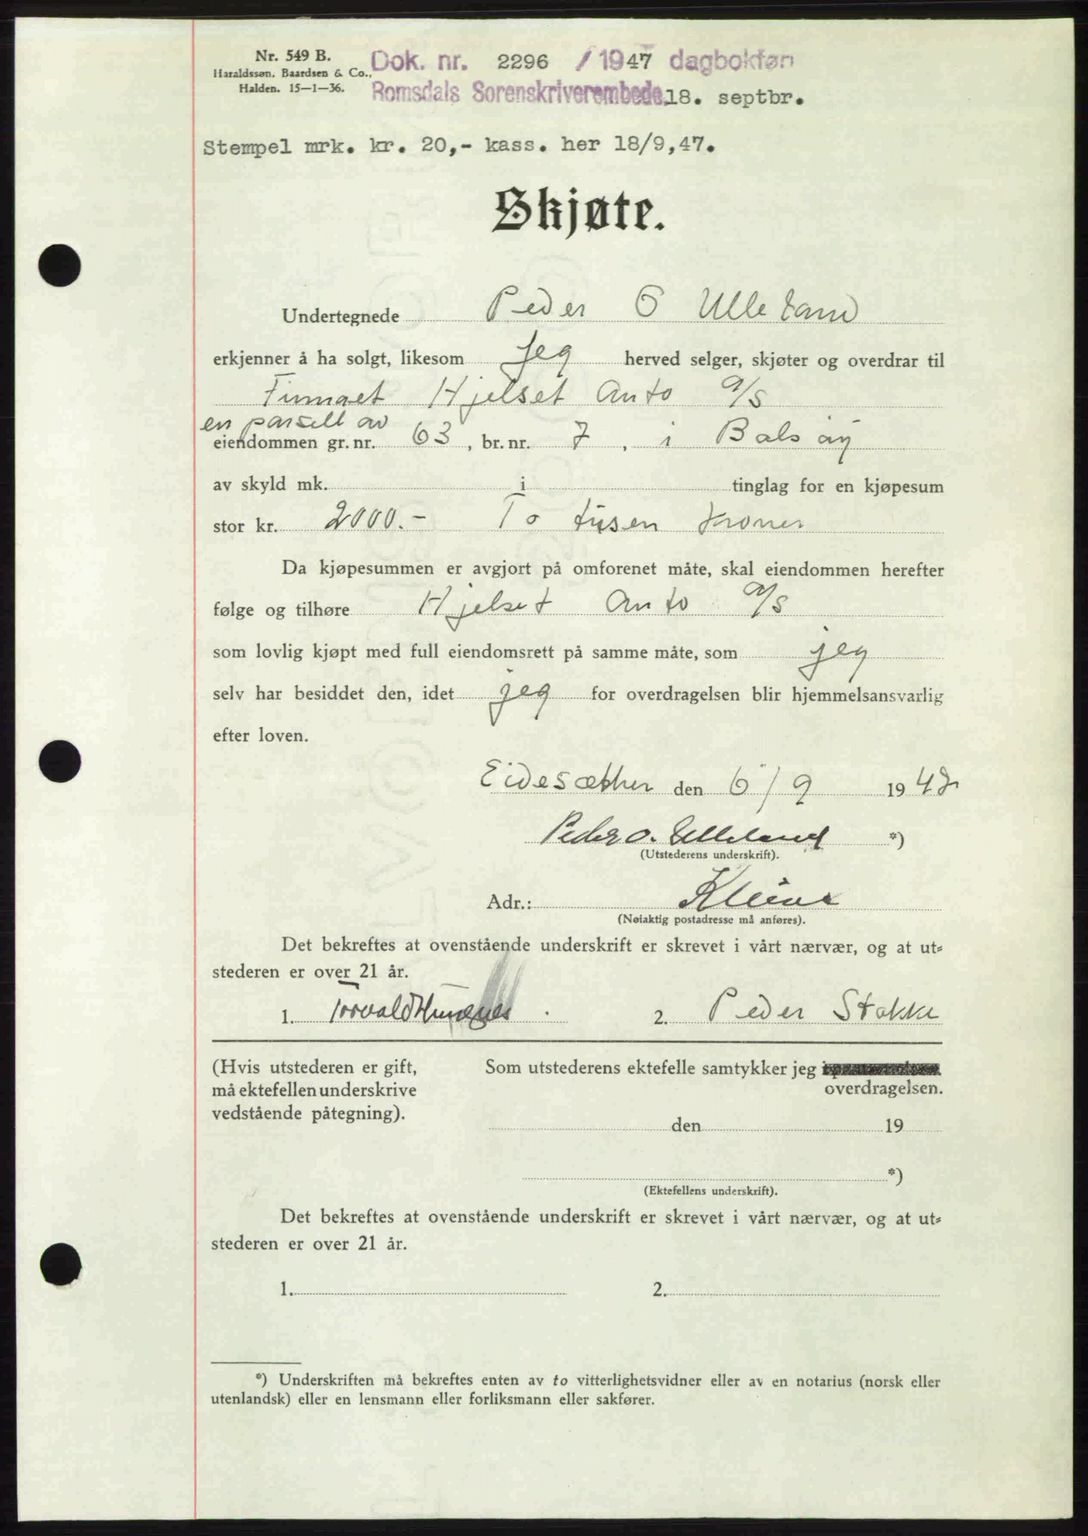 Nr. 549 B.
Haraldssøn, Baardsen & Co.,
Halden. 15–1–36.
Dok. nr. 2296 / 1947 dagbokført
Romsdals Sorenskriverembede, 18. septbr.
Stempel mrk. kr. 20,- kass. her 18/9,47.
Skjøte.
Undertegnede Peder O Ulleland
erkjenner å ha solgt, likesom jeg herved selger, skjøter og overdrar til
Firmaet Hjelset Auto A/S
en parsell av
eiendommen gr. nr. 63, br. nr. 7, i Bolsøy
av skyld mk. i tinglag for en kjøpesum
stor kr. 2000.- To tusen kroner
Da kjøpesummen er avgjort på omforenet måte, skal eiendommen herefter
følge og tilhøre Hjelset Auto A/S
som lovlig kjøpt med full eiendomsrett på samme måte, som jeg
selv har besiddet den, idet jeg for overdragelsen blir hjemmelsansvarlig
efter loven.
Eidesæther den 6/9 1947
Peder O. Ulleland *)
(Utstederens underskrift).
Adr.: Kleive
(Nøiaktig postadresse må anføres).
Det bekreftes at ovenstående underskrift er skrevet i vårt nærvær, og at ut-
stederen er over 21 år.
1. Torvald 2. Peder Stokke
(Hvis utstederen er gift,
må ektefellen underskrive
vedstående påtegning).
Som utstederens ektefelle samtykker jeg i
overdragelsen.
den 19
*)
(Ektefellens underskrift).
Det bekreftes at ovenstående underskrift er skrevet i vårt nærvær, og at ut-
stederen er over 21 år.
1. 2.
*) Underskriften må bekreftes enten av to vitterlighetsvidner eller av en notarius (norsk eller
utenlandsk) eller en lensmann eller forliksmann eller sakfører.